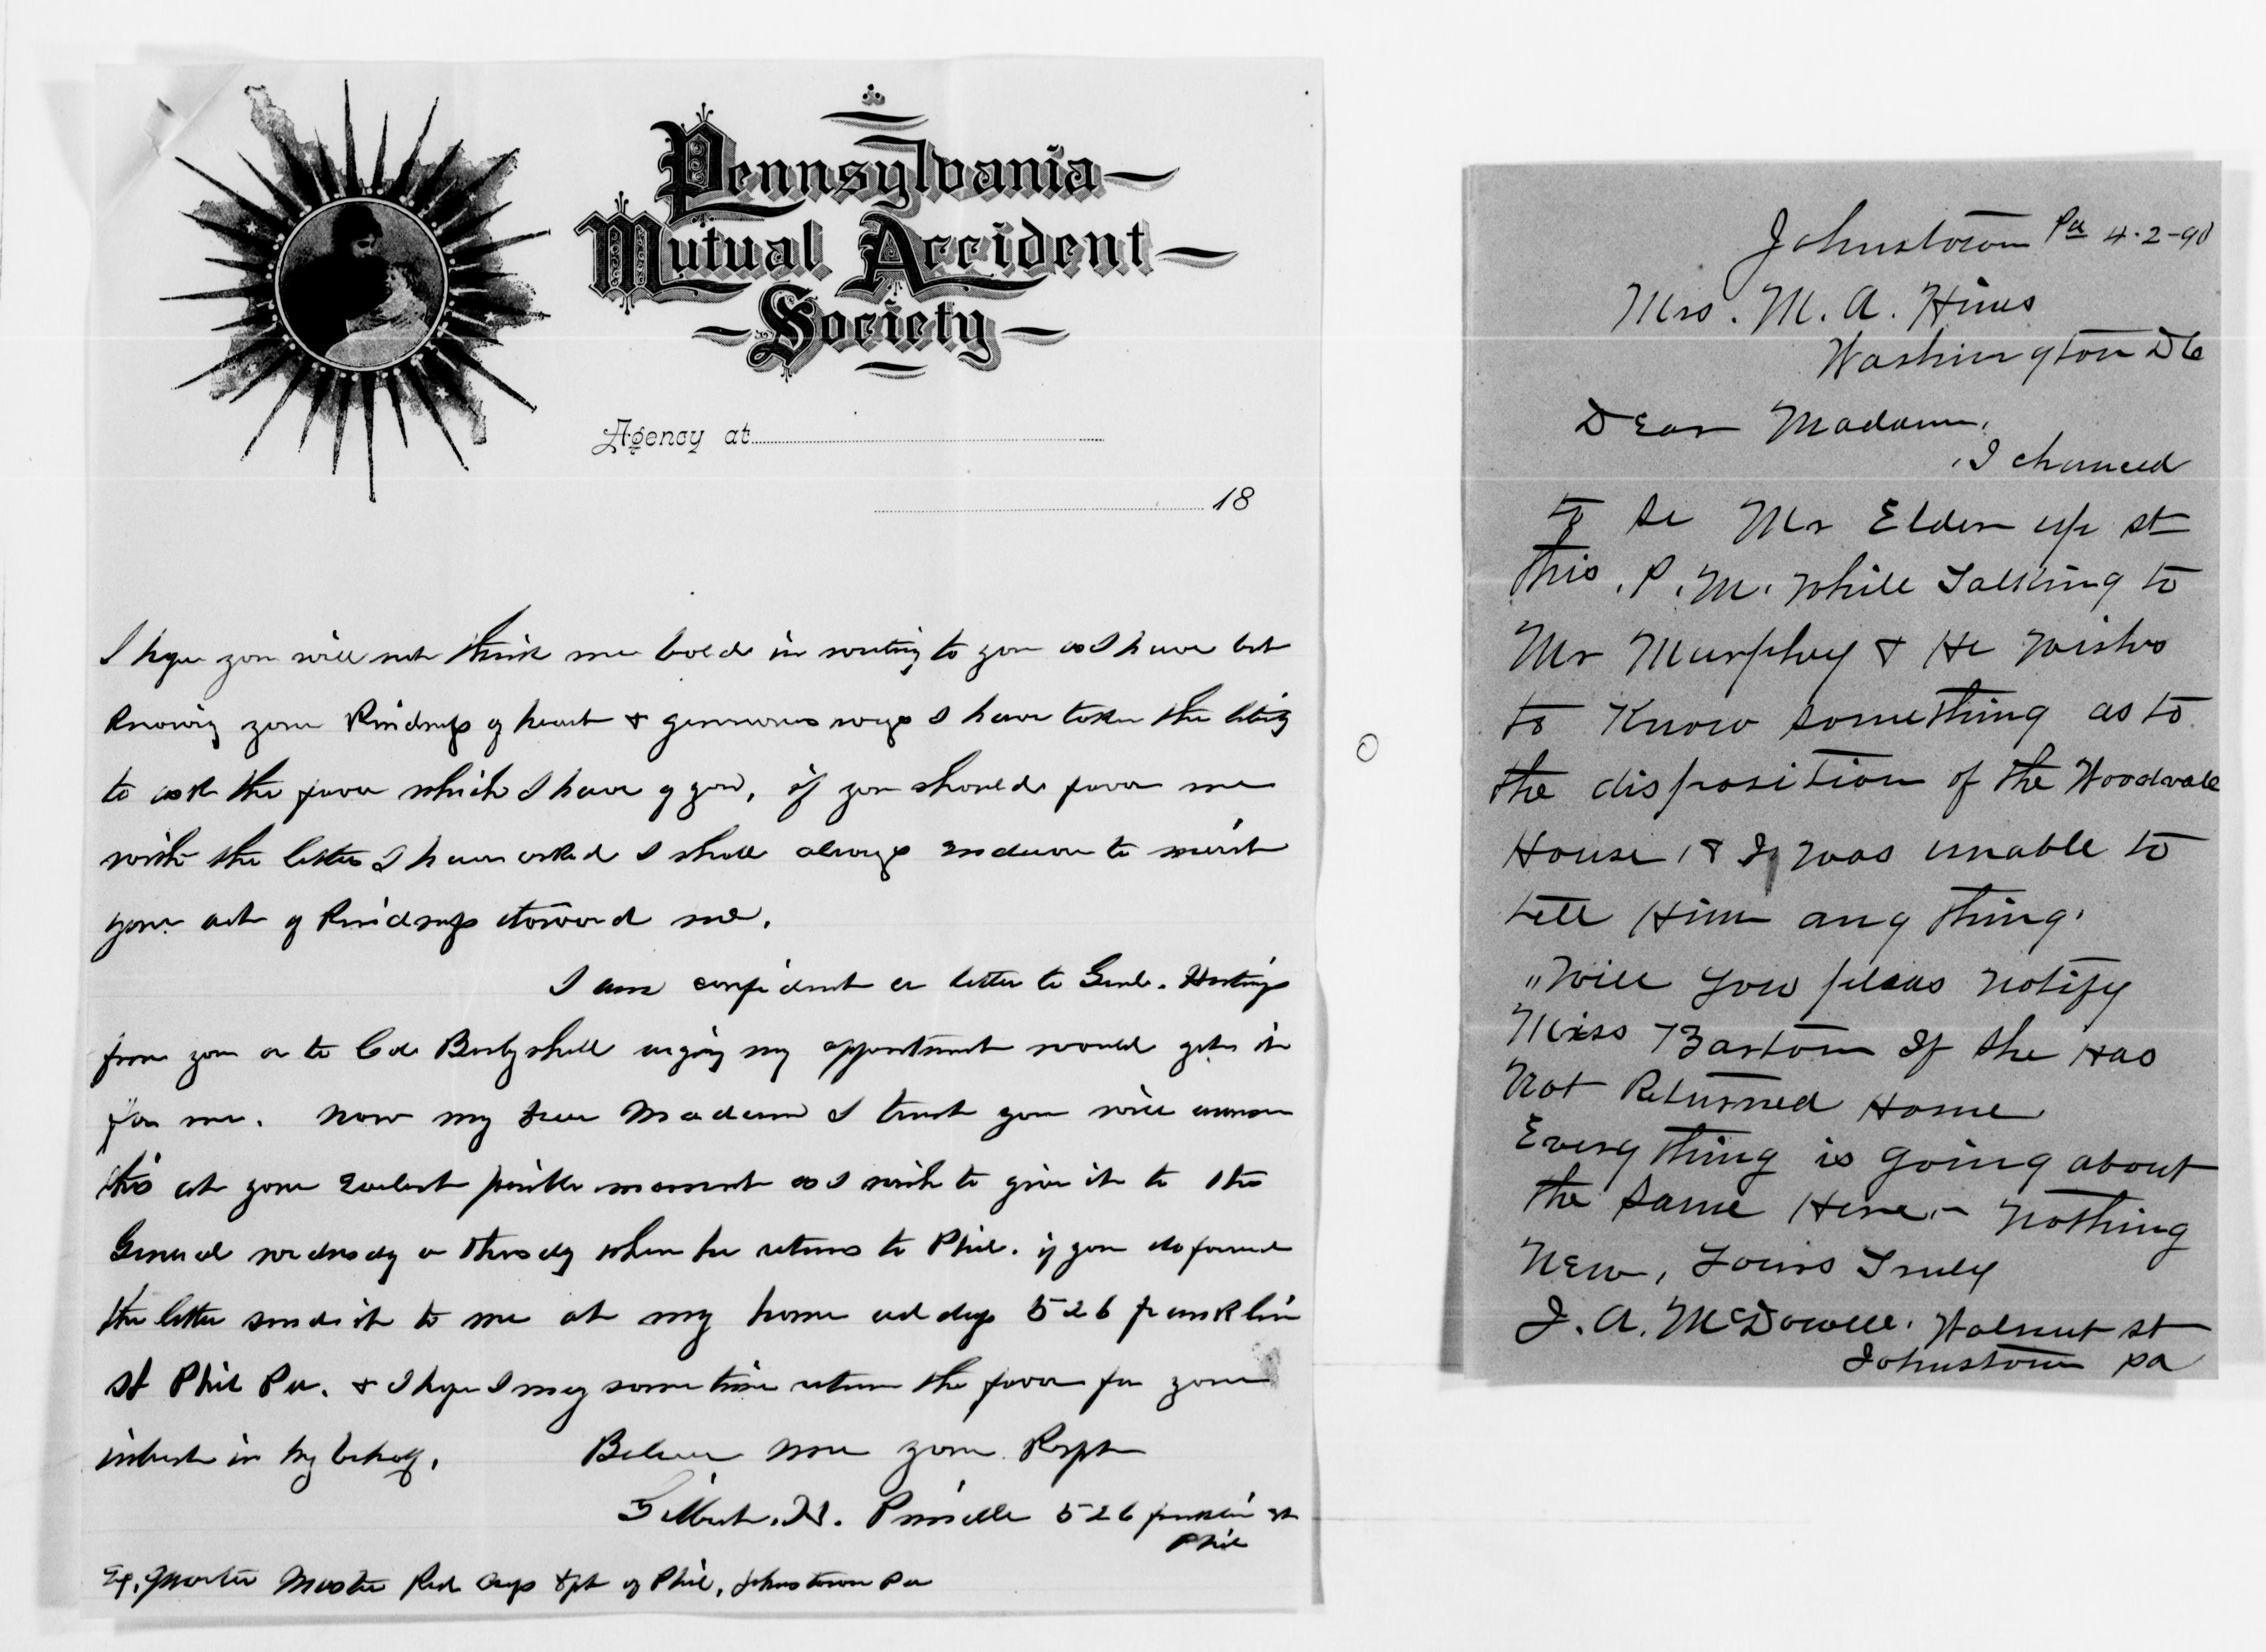 Pennsylvania
Mutual Accident
Society
Agency at
18
I hope you will not think me bold in writing to you as I have but
knowing your kindness of heart & generous ways I have taken the liberty
to ask the favor which I have of you, if you should favor me
with the letter I have asked I shall always endeavor to merit
your act of kindness toward me.
I am confident a letter to Genl. Hastings
from you or to Col urging my appointment would get it
for me. Now my Dear Madam I trust you will answer
this at your Earlest possible moment as I wish to give it to the
General wednesdy or thursdy when he returns to Phil. if you do forward
the letter send it to me at my home address 526 franklin
St Phil Pa. & I hope I may some time return the favor for your
intrest in my behalf. Believe me your Respt
Gilbert. 526 franklin st
Phil
Ex. Quarter Master Red Cross of Phil, Johnstown Pa
Johnstown Pa 4-2-90
Mrs. M. A. Hines
Washington DC
Dear Madam,
I chanced
to Se Mr Elder up st
this P.M. while Talking to
Mr Murphey & He wishes
to Know something as to
the disposition of the Woodvale
House, & I was unable to
tell Him any thing.
"Will you pleas notify
Miss Barton If she Has
Not Returned Home
Every thing is going about
the same Here - nothing
New, Yours Truly
J. A. McDowell. Walnut st
Johnstown pa